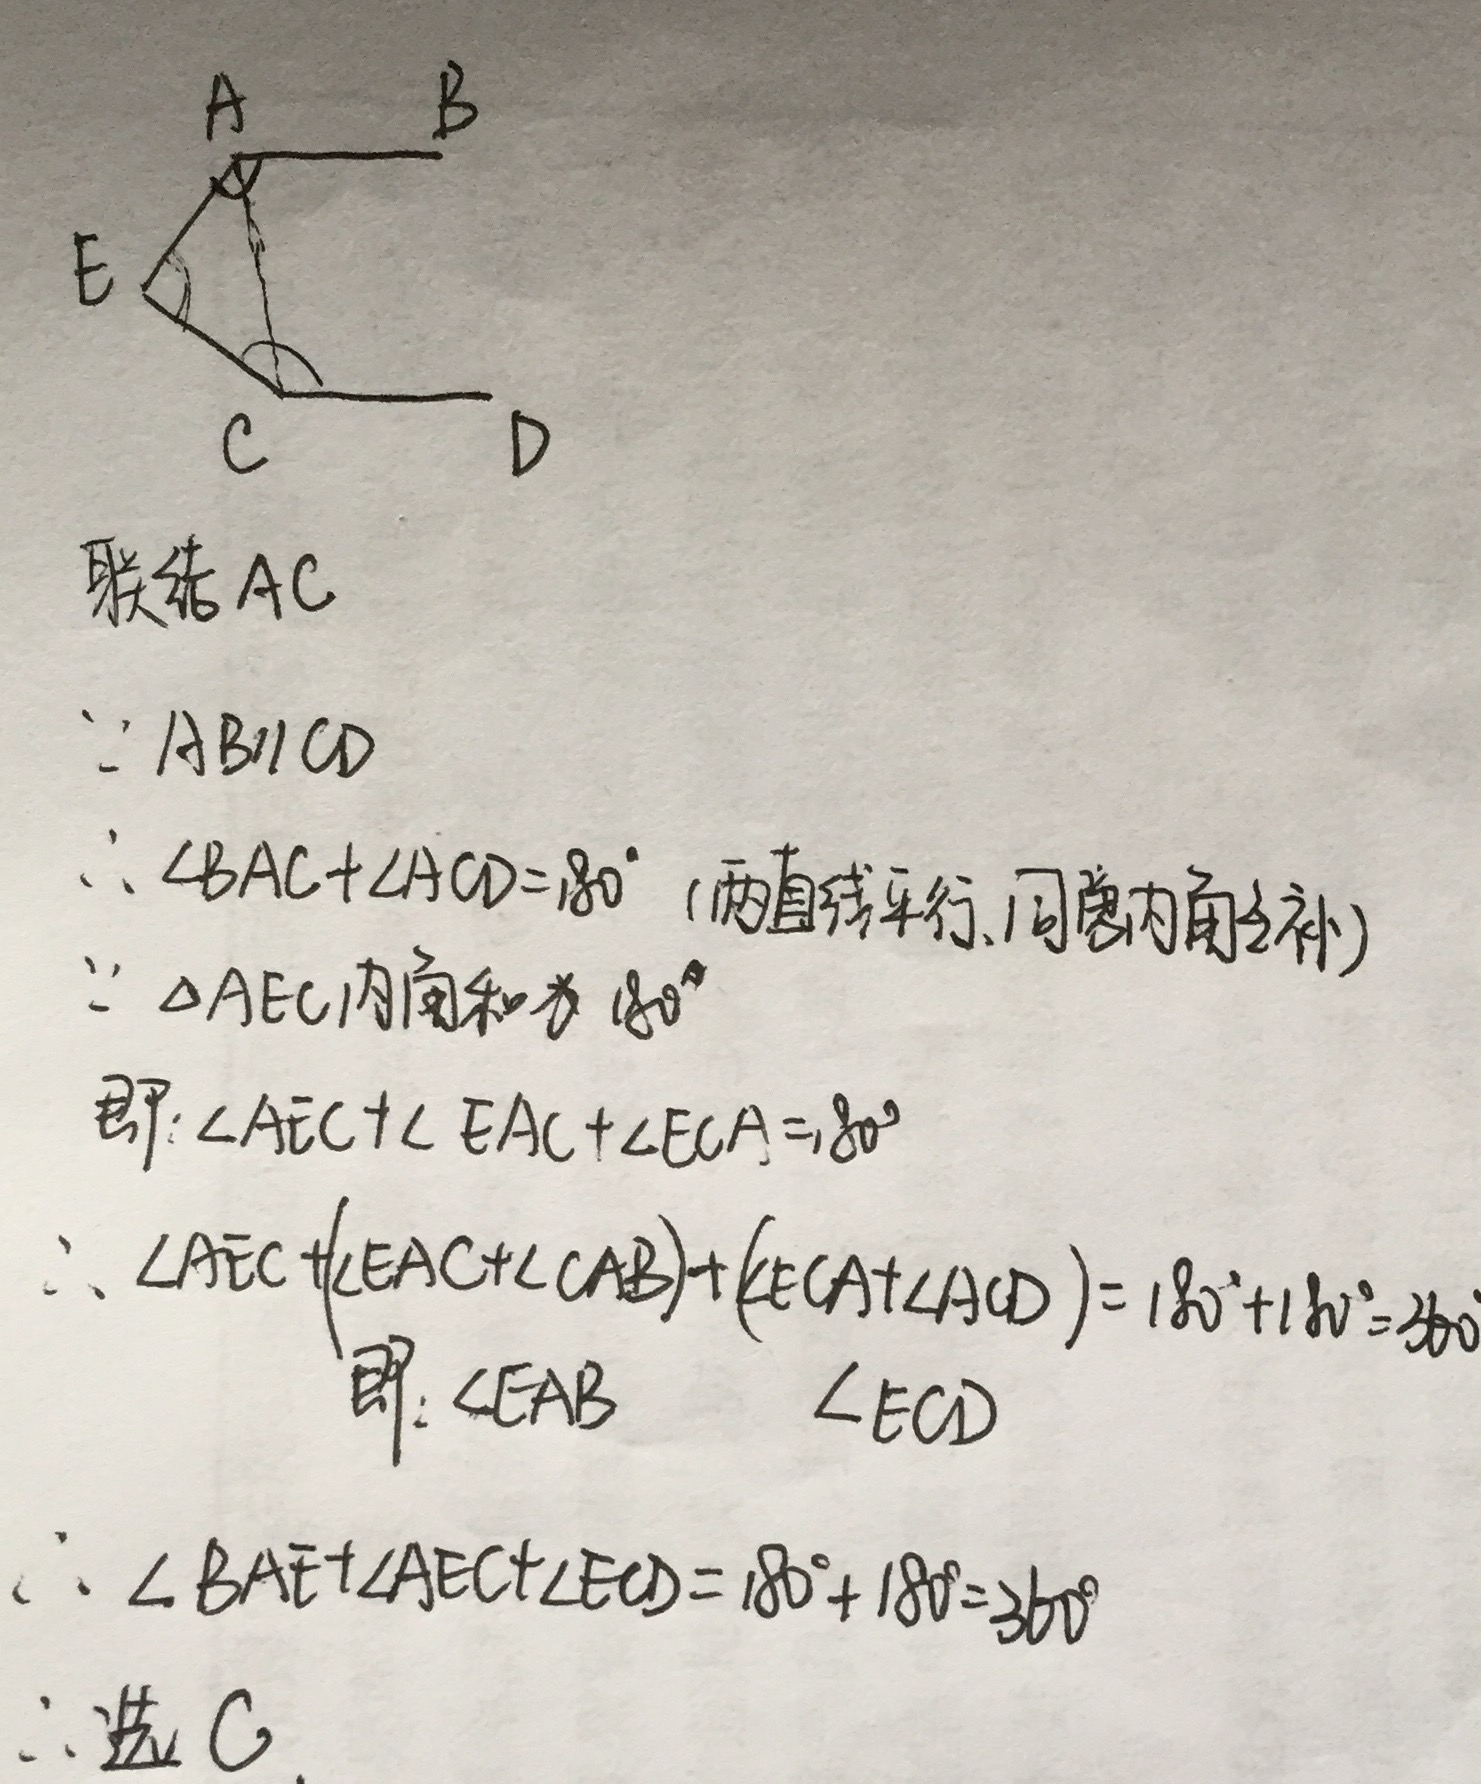 A B
E
C D
联结AC
∵ AB∥CD
∴ ∠BAC+∠ACD=180° (两直线平行、同旁内角互补)
∵ △AEC内角和为180°
即:∠AEC+∠EAC+∠ECA=180°
∴ ∠AEC+(∠EAC+∠CAB)+(∠ECA+∠ACD)=180°+180°=360°
即:∠EAB ∠ECD
∴ ∠BAE+∠AEC+∠ECD=180°+180°=360°
∴选C.